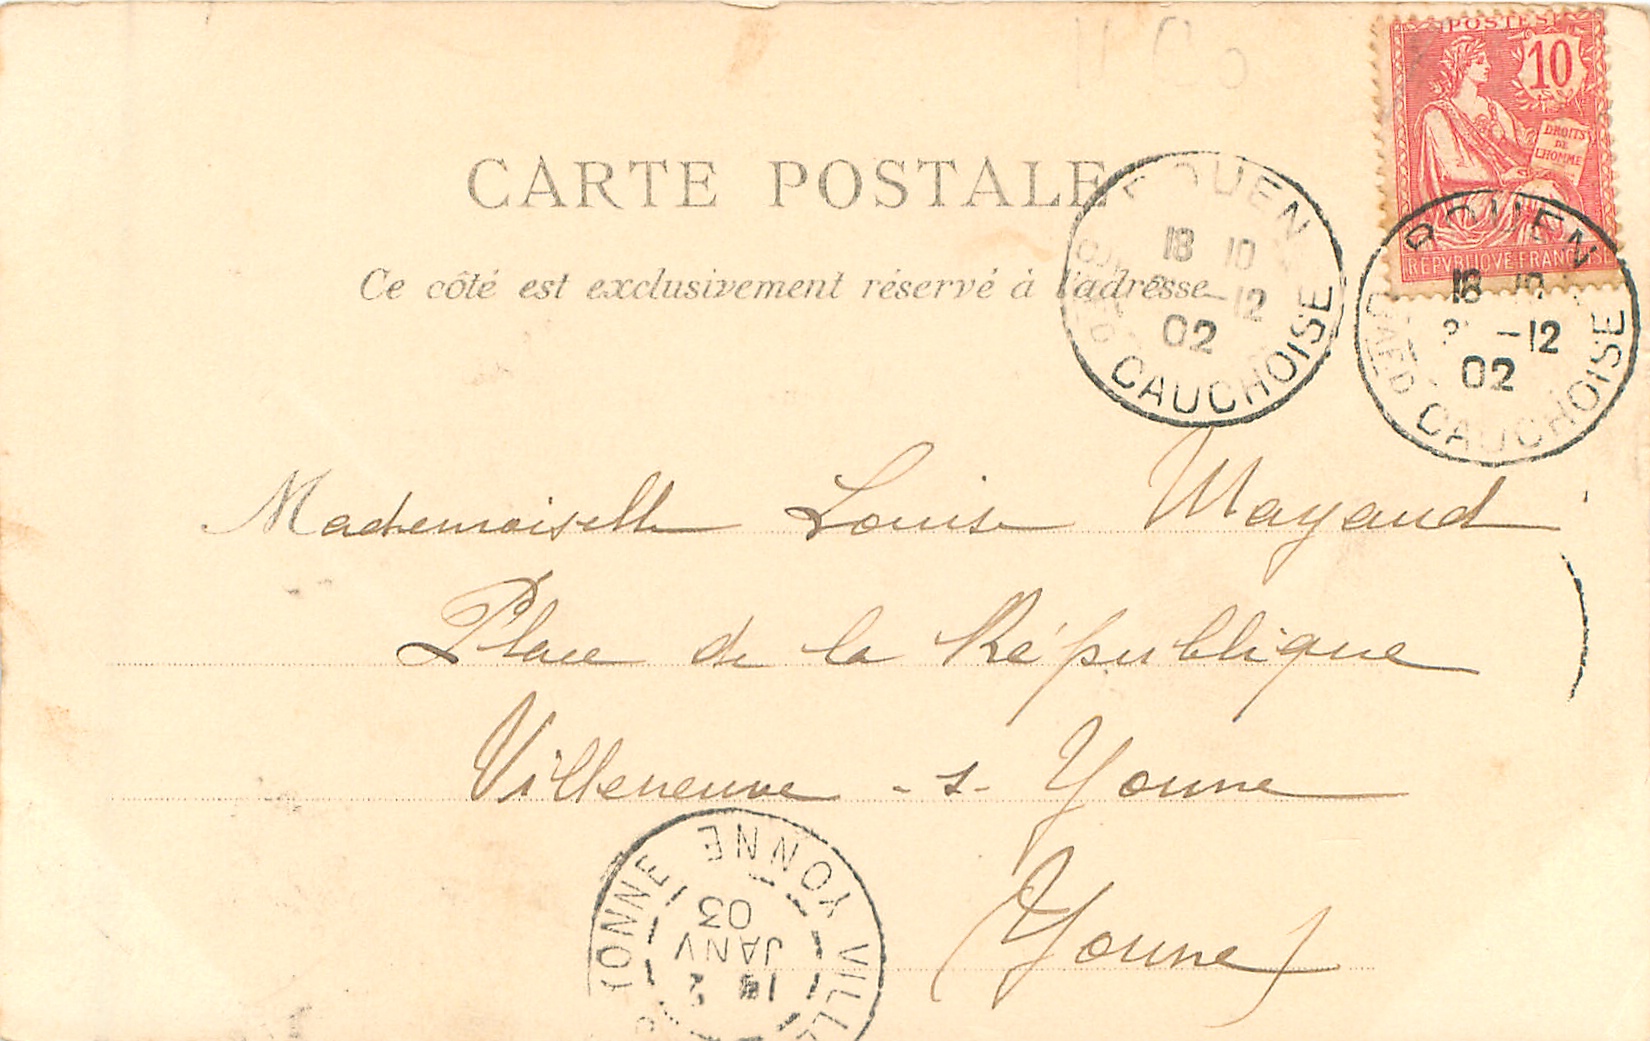 POSTES
10
DROITS
DE
L'HOMME
REPVBLIQVE FRANCAISE
CARTE POSTALE
Ce côté est exclusivement réservé à l'adresse
ROUEN
18 10
-12
02
CAUCHOISE
ROUEN
18 10
-12
02
CAUCHOISE
Mademoiselle Louise Mayaud
Place de la République
Villeneuve -s- Yonne
(Yonne)
YONNE
JANV
03